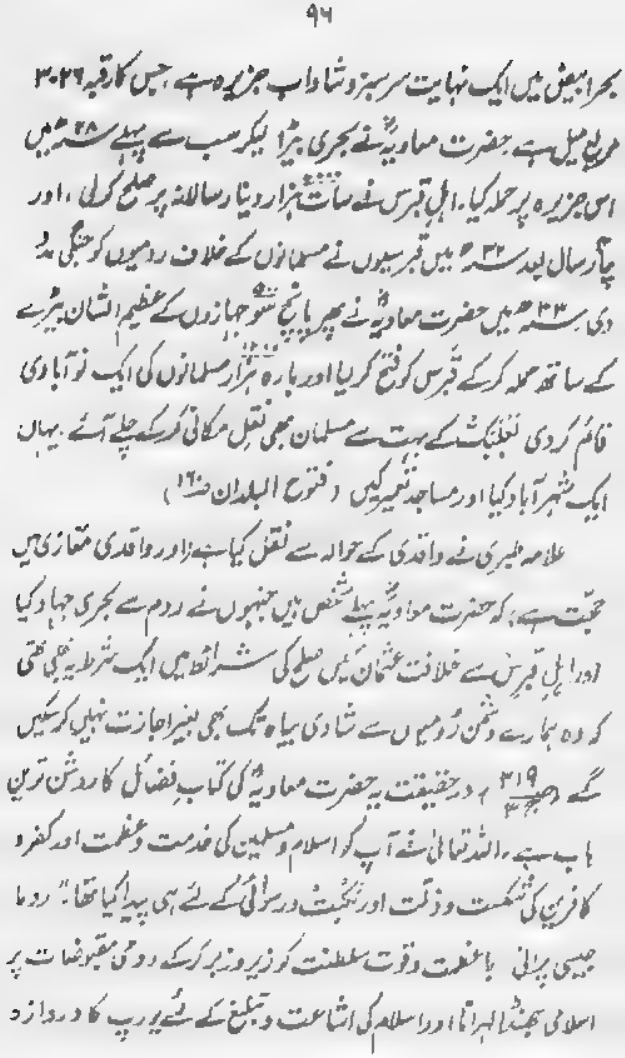 ۹۴
بحر ابیض میں ایک نہایت سرسبز و شاداب جزیرہ ہے، جس کا رقبہ ۳۰۲۶
مربع میل ہے حضرت معاویہؓ نے بحری بیڑا لیکر سب سے پہلے سنہ ۲۸ھ میں
اس جزیرہ پر حملہ کیا۔ اہل قبرس نے سات ہزار دینار سالانہ پر صلح کر لی، اور
چار سال بعد سنہ ۳۲ھ میں قبرسیوں نے مسلمانوں کے خلاف رومیوں کو جنگی مدد
دی۔ سنہ ۳۳ھ میں حضرت معاویہؓ نے پھر پانچ سو جہازوں کے عظیم الشان بیڑے
کے ساتھ حملہ کر کے قبرس کو فتح کر لیا اور بارہ ہزار مسلمانوں کی ایک نوآبادی
قائم کر دی بَعْلَبَک کے بہت سے مسلمان بھی نقل مکانی کر کے چلے آئے۔ یہاں
ایک شہر آباد کیا اور مساجد تعمیر کیں (فتوح البلدان ص۱۶۰)
علامہ طبری نے واقدی کے حوالہ سے نقل کیا ہے (اور واقدی مغازی میں
حجت ہے) کہ حضرت معاویہؓ پہلے شخص ہیں جنہوں نے روم سے بحری جہاد کیا
اور اہل قبرس سے خلافت عثمان میں صلح کی شرائط میں ایک شرط یہ بھی تھی
کہ وہ ہمارے دشمن رُومیوں سے شادی بیاہ تک بھی بغیر اجازت نہیں کر سکیں
گے (۳۱۹/ج۳) درحقیقت یہ حضرت معاویہؓ کی کتاب فضائل کا روشن ترین
باب ہے۔ اللہ تعالیٰ نے آپ کو اسلام و مسلمین کی خدمت و عظمت اور کفر و
کافرین کی شکست و ذلت اور نکبت و رسوائی کے لئے ہی پیدا کیا تھا۔ روما
جیسی پرانی باعظمت و قوت سلطنت کو زیر و زبر کر کے رومی مقبوضات پر
اسلامی جھنڈا لہرانا اور اسلام کی اشاعت و تبلیغ کے لئے یورپ کا دروازہ